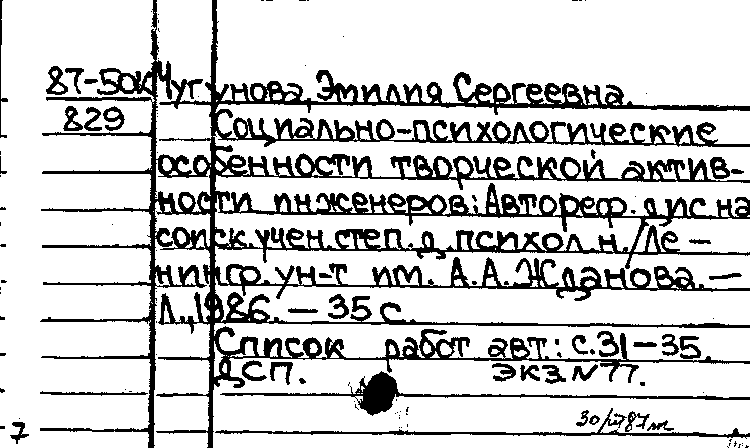 87-50к Чугунова, Эмилия Сергеевна.
829 Социально-психологические
особенности творческой актив-
ности инженеров: Автореф. дис. на
соиск. учен. степ. д. психол. н. / Ле-
нингр. ун-т им. А. А. Жданова. —
Л., 1986. — 35 с.
Список работ авт.: с. 31-35.
ДСП. экз. №77.
7